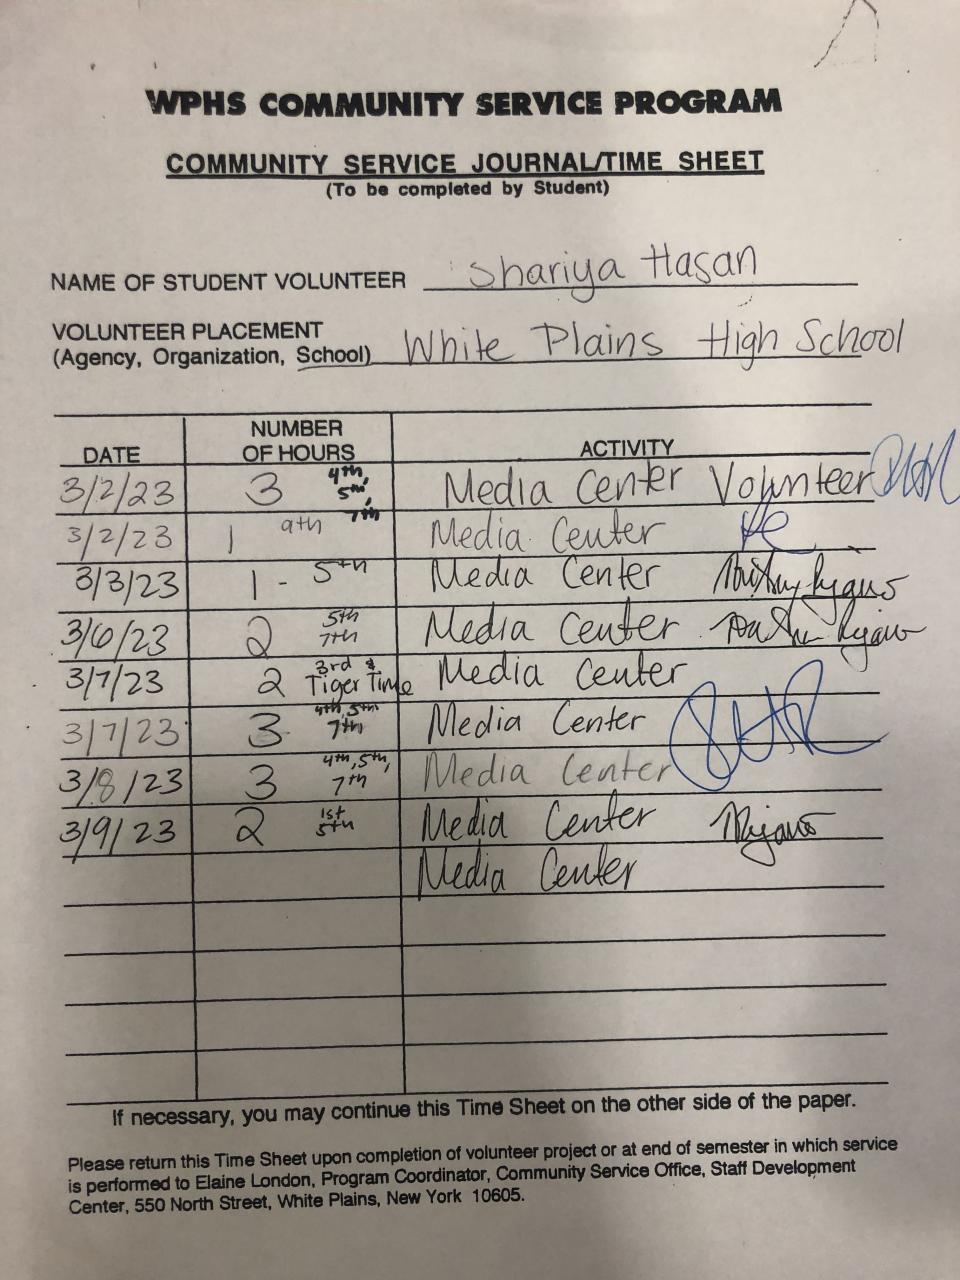 WPHS COMMUNITY SERVICE PROGRAM
COMMUNITY SERVICE JOURNAL/TIME SHEET
(To be completed by Student)
NAME OF STUDENT VOLUNTEER Shariya Hasan
VOLUNTEER PLACEMENT
(Agency, Organization, School) White Plains High School
DATE NUMBER OF HOURS ACTIVITY
3/2/23 3 4th, 5th, 7th Media Center Volunteer
3/2/23 1 9th Media Center
3/3/23 1 - 5th Media Center
3/6/23 2 5th 7th Media Center
3/7/23 2 3rd & Tiger Time Media Center
3/7/23 3 4th, 5th, 7th Media Center
3/8/23 3 4th, 5th, 7th Media Center
3/9/23 2 1st 5th Media Center
Media Center
If necessary, you may continue this Time Sheet on the other side of the paper.
Please return this Time Sheet upon completion of volunteer project or at end of semester in which service
is performed to Elaine London, Program Coordinator, Community Service Office, Staff Development
Center, 550 North Street, White Plains, New York 10605.